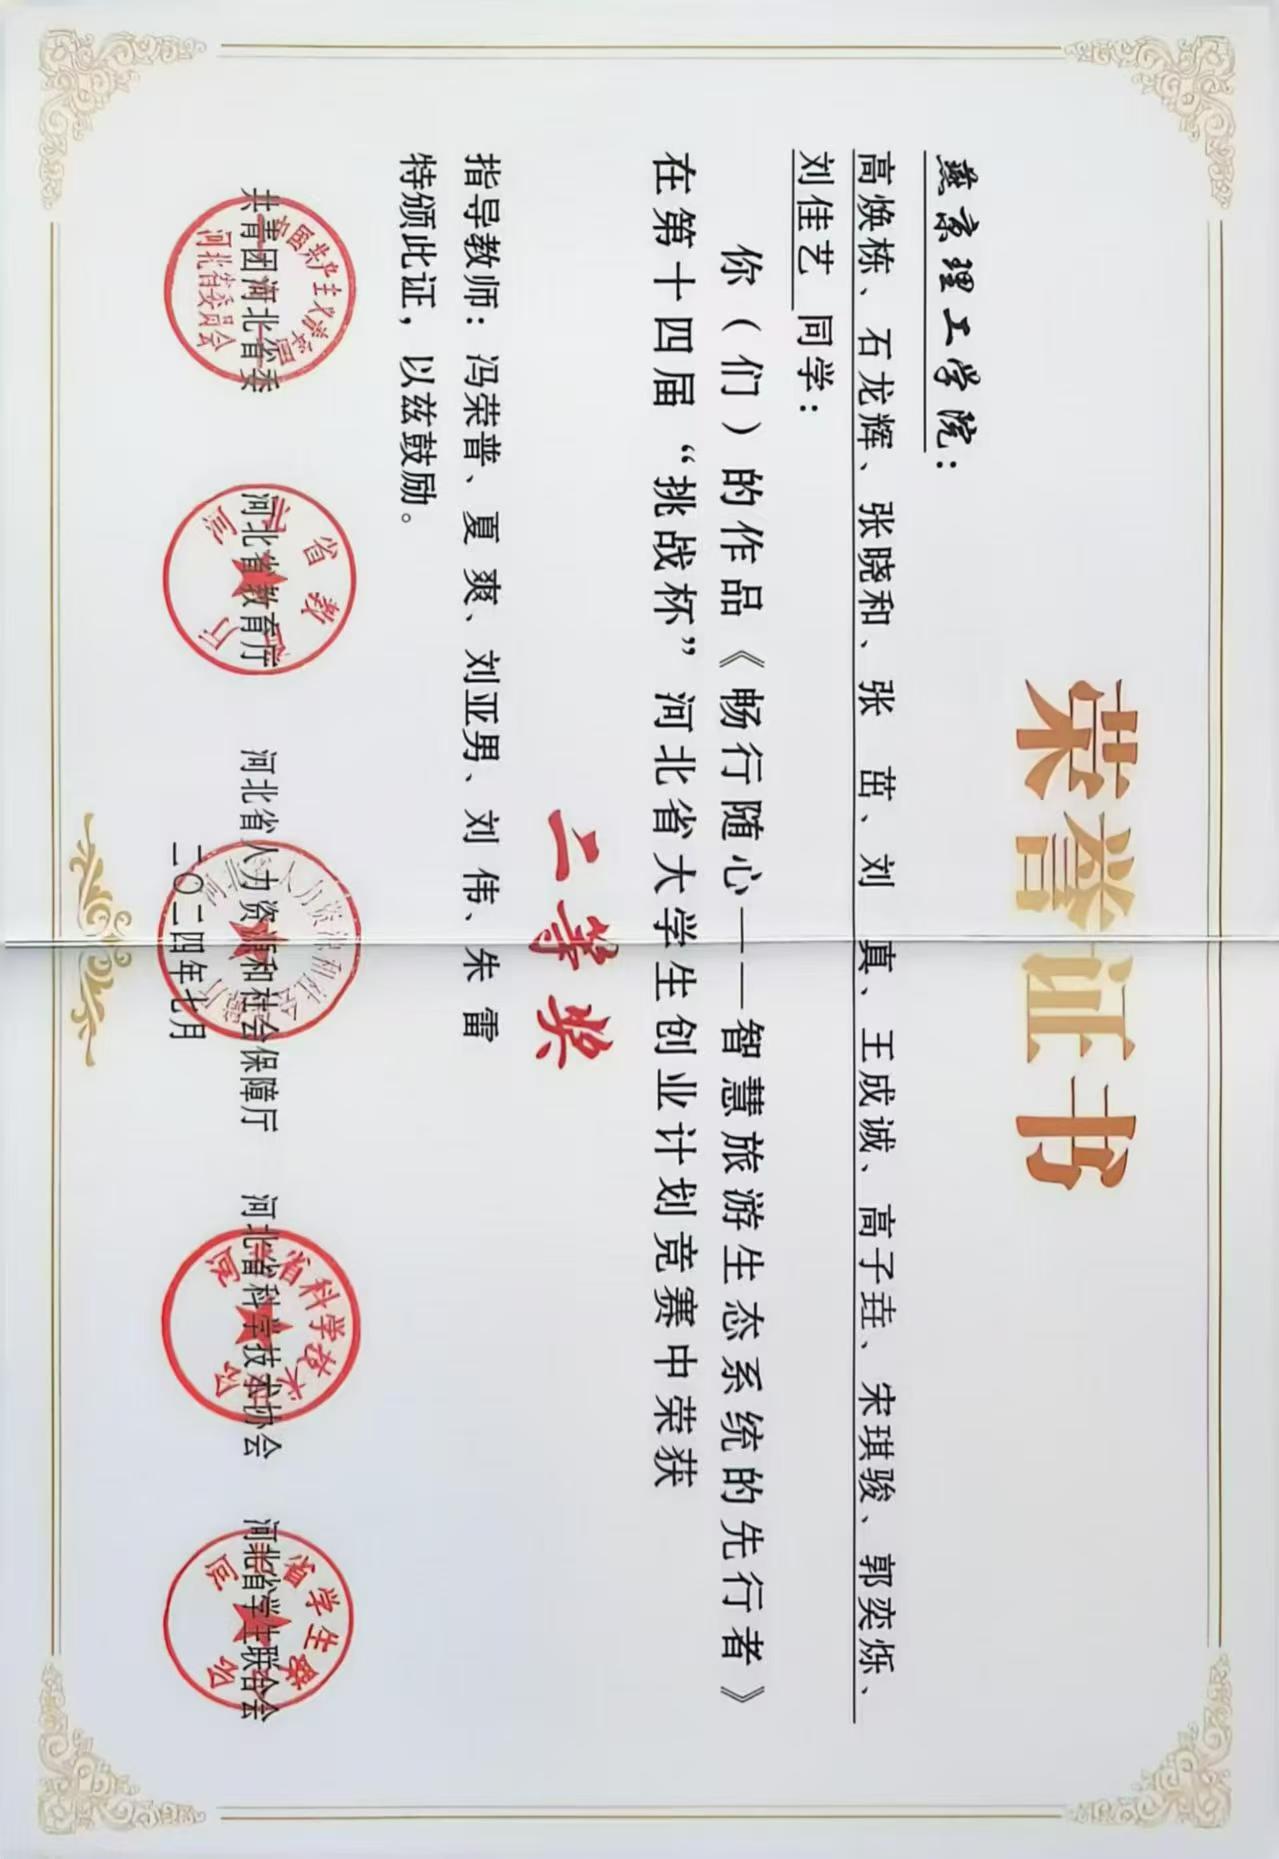 荣誉证书
燕京理工学院：
高焕栋、石龙辉、张晓和、张 苗、刘 真、王成诚、高子珪、宋琪骏、郭奕烁、
刘佳艺 同学：
你（们）的作品《畅行随心——智慧旅游生态系统的先行者》
在第十四届“挑战杯”河北省大学生创业计划竞赛中荣获
二等奖
指导教师：冯荣普、夏 爽、刘亚男、刘 伟、朱 雷
特颁此证，以兹鼓励。
共青团河北省委 河北省教育厅 河北省人力资源和社会保障厅 河北省科学技术协会 河北省学生联合会
二〇二四年七月